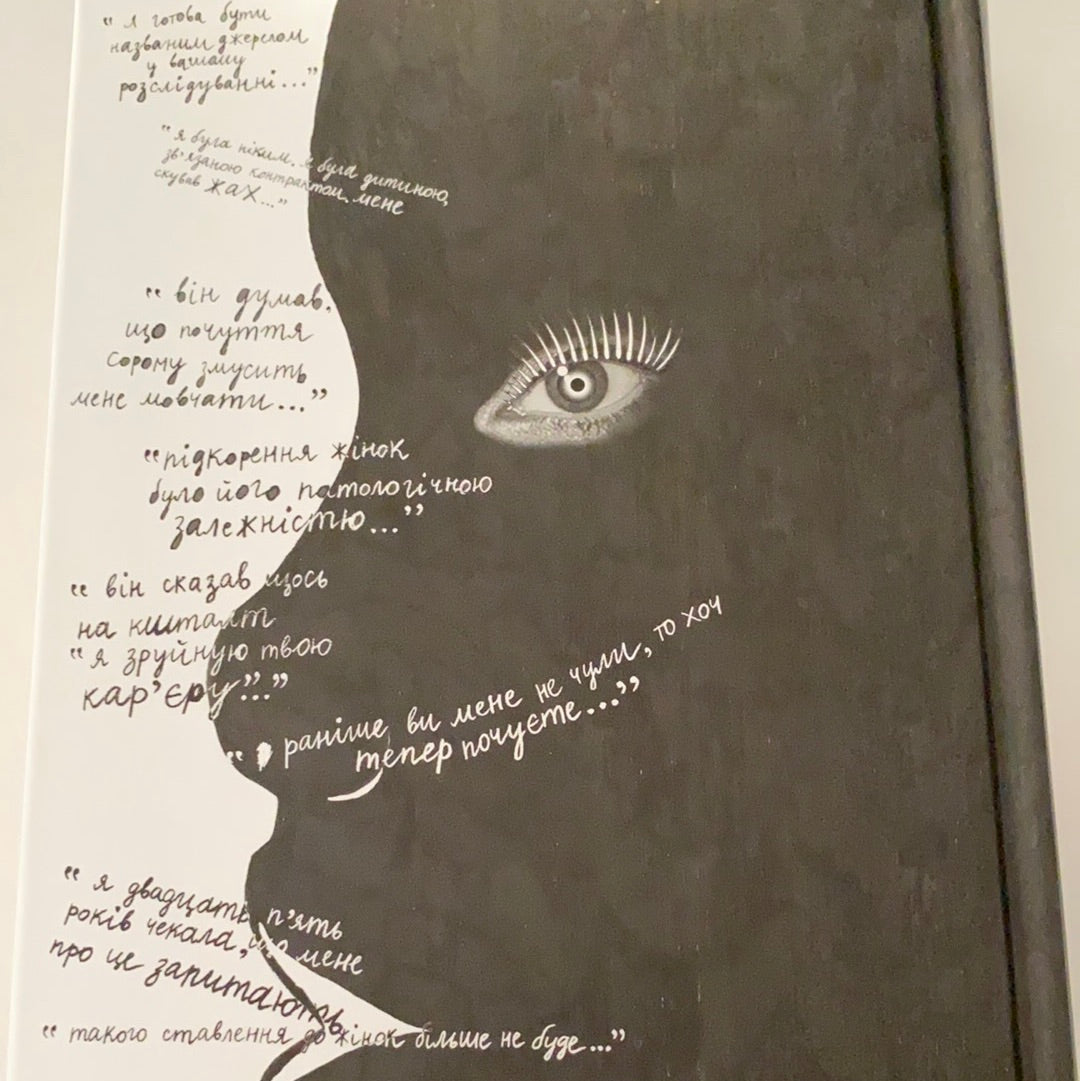 “ я готова бути
названим джерелом
у вашому
розслідуванні...”
“я була ніким. я була дитиною,
зв’язаною контрактом. мене
скував жах...”
“ він думав,
що почуття
сорому змусить
мене мовчати...”
“підкорення жінок
було його патологічною
залежністю...”
“ він сказав щось
на кшталт
“я зруйную твою
кар’єру”...”
“ раніше ви мене не чули, то хоч
тепер почуєте...”
“ я двадцять п’ять
років чекала, що мене
про це запитають
“ такого ставлення до жінок більше не буде...”